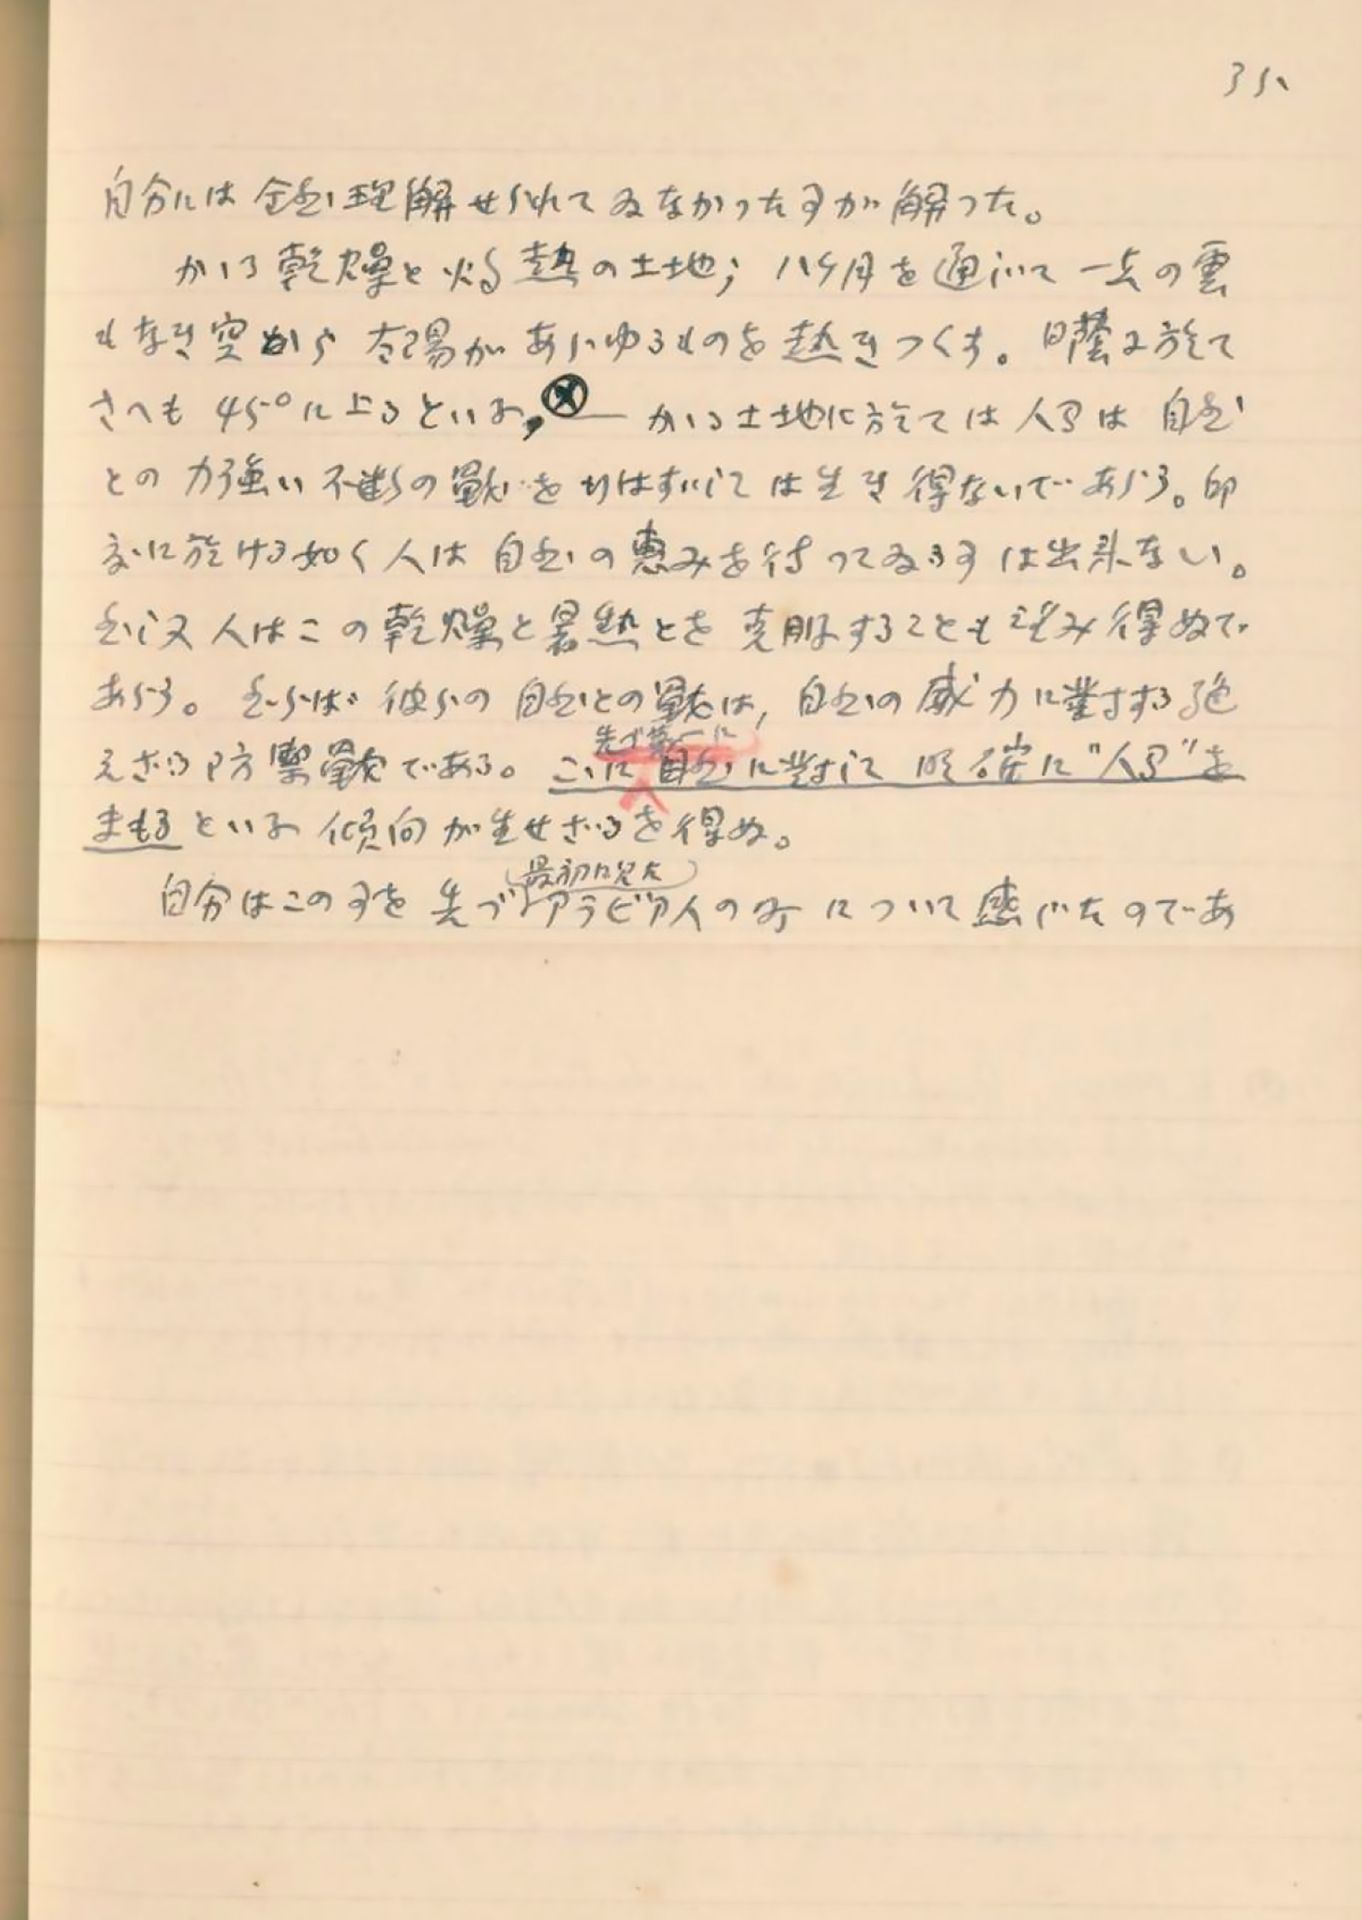 35、
自分には全然理解せられてゐなかった事が解った。
かゝる乾燥と灼熱の土地；八ケ月を通じて一点の雲
もなき空から太陽があらゆるものを熱きつくす。日蔭に於て
さへも45°に上るといふ，⊗― かゝる土地に於ては人間は自然
との力強い不断の戦をせずしては生き得ないであらう。印
度に於ける如く人は自然の恵みを待ってゐる事は出来ない。
然し又人はこの乾燥と暑熱とを克服することも望み得ぬで
あらう。然らば彼らの自然との戦は，自然の威力に對する絶
えざる防禦戦である。こゝに先づ第一に自然に對して明確に"人間"を
まもるといふ傾向が生せざるを得ぬ。
自分はこの事を先づ最初に見たアラビア人の町について感じたのであ